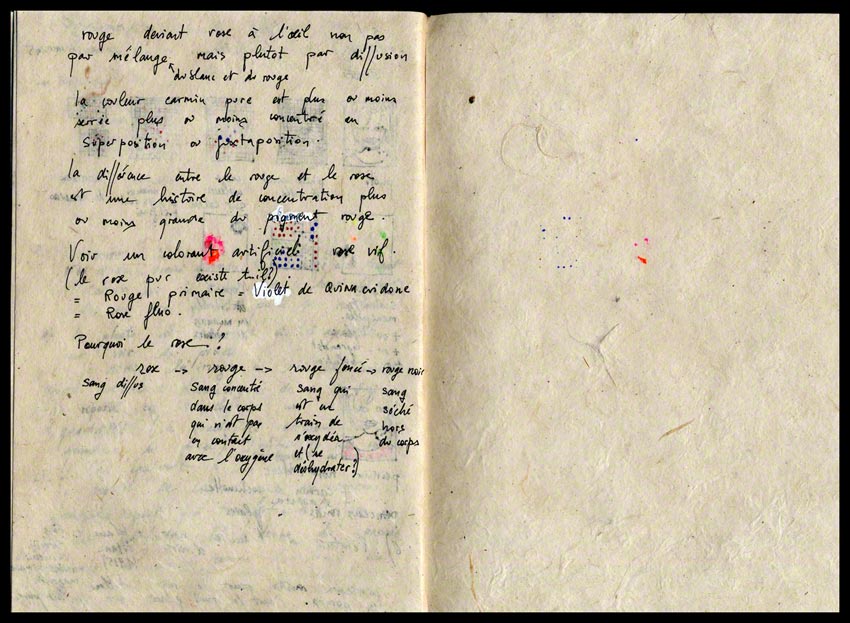 rouge devient rose à l'œil non pas
par mélange mais plutot par diffusion
du blanc et du rouge
la couleur carmin pure est plus ou moins
serrée plus ou moins concentré en
superposition ou juxtaposition.
la différence entre le rouge et le rose
est une histoire de concentration plus
ou moins grande du pigment rouge.
Voir un colorant artificiel rose vif.
(le rose pur existe t-il?)
= Rouge primaire = Violet de Quinacridone
= Rose fluo.
Pourquoi le rose ?
rose -> rouge -> rouge foncé -> rouge noir
sang diffus
sang concentré
dans le corps
qui n'est pas
en contact
avec l'oxygène
sang qui
est en
train de
s'oxyder
et (se
déshydrater?)
sang
séché
hors
du corps